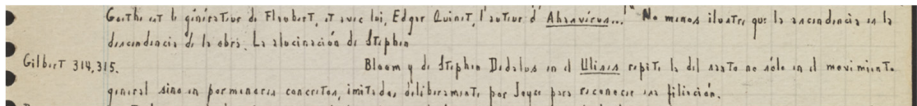 Goethe est le générateur de Flaubert, et avec lui, Edgar Quinet, l'auteur d'Ahasvérus..." No menos ilustre que la ascendencia es la
descendencia de la obra. La alucinación de Stephen
Gilbert 314,315. Bloom y de Stephen Dedalus en el Ulises repite la del santo no sólo en el movimiento
general sino en pormenores concretos, imitados deliberamente por Joyce para reconocer esa filiación.